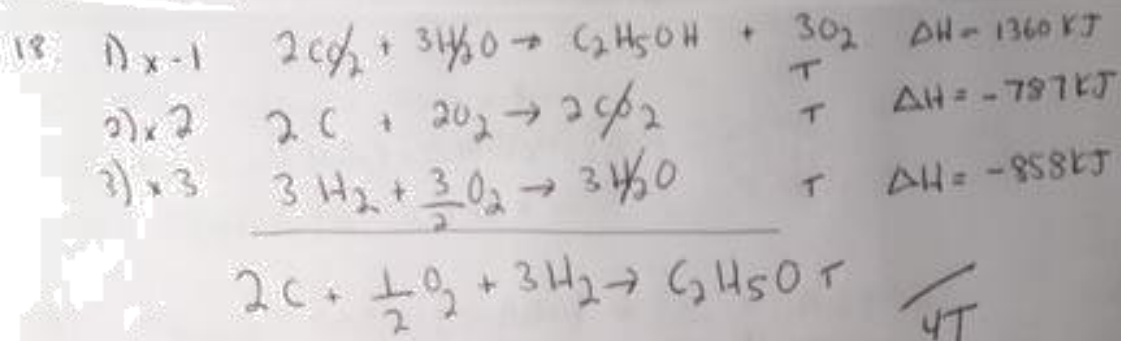 18 1) x -1 2CO2 + 3H2O → C2H5OH + 3O2 ΔH = 1360 KJ
T
2) x 2 2C + 2O2 → 2CO2 T ΔH = -787KJ
3) x 3 3H2 + 3/2 O2 → 3H2O T ΔH = -858KJ
2C + 1/2 O2 + 3H2 → C2H5O T /4T